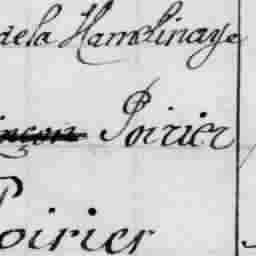 dela Hamelinaye
inçon Poirier
Poirier